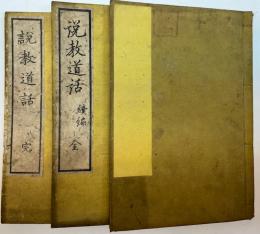 説教道話
續編
全
説教道話
完